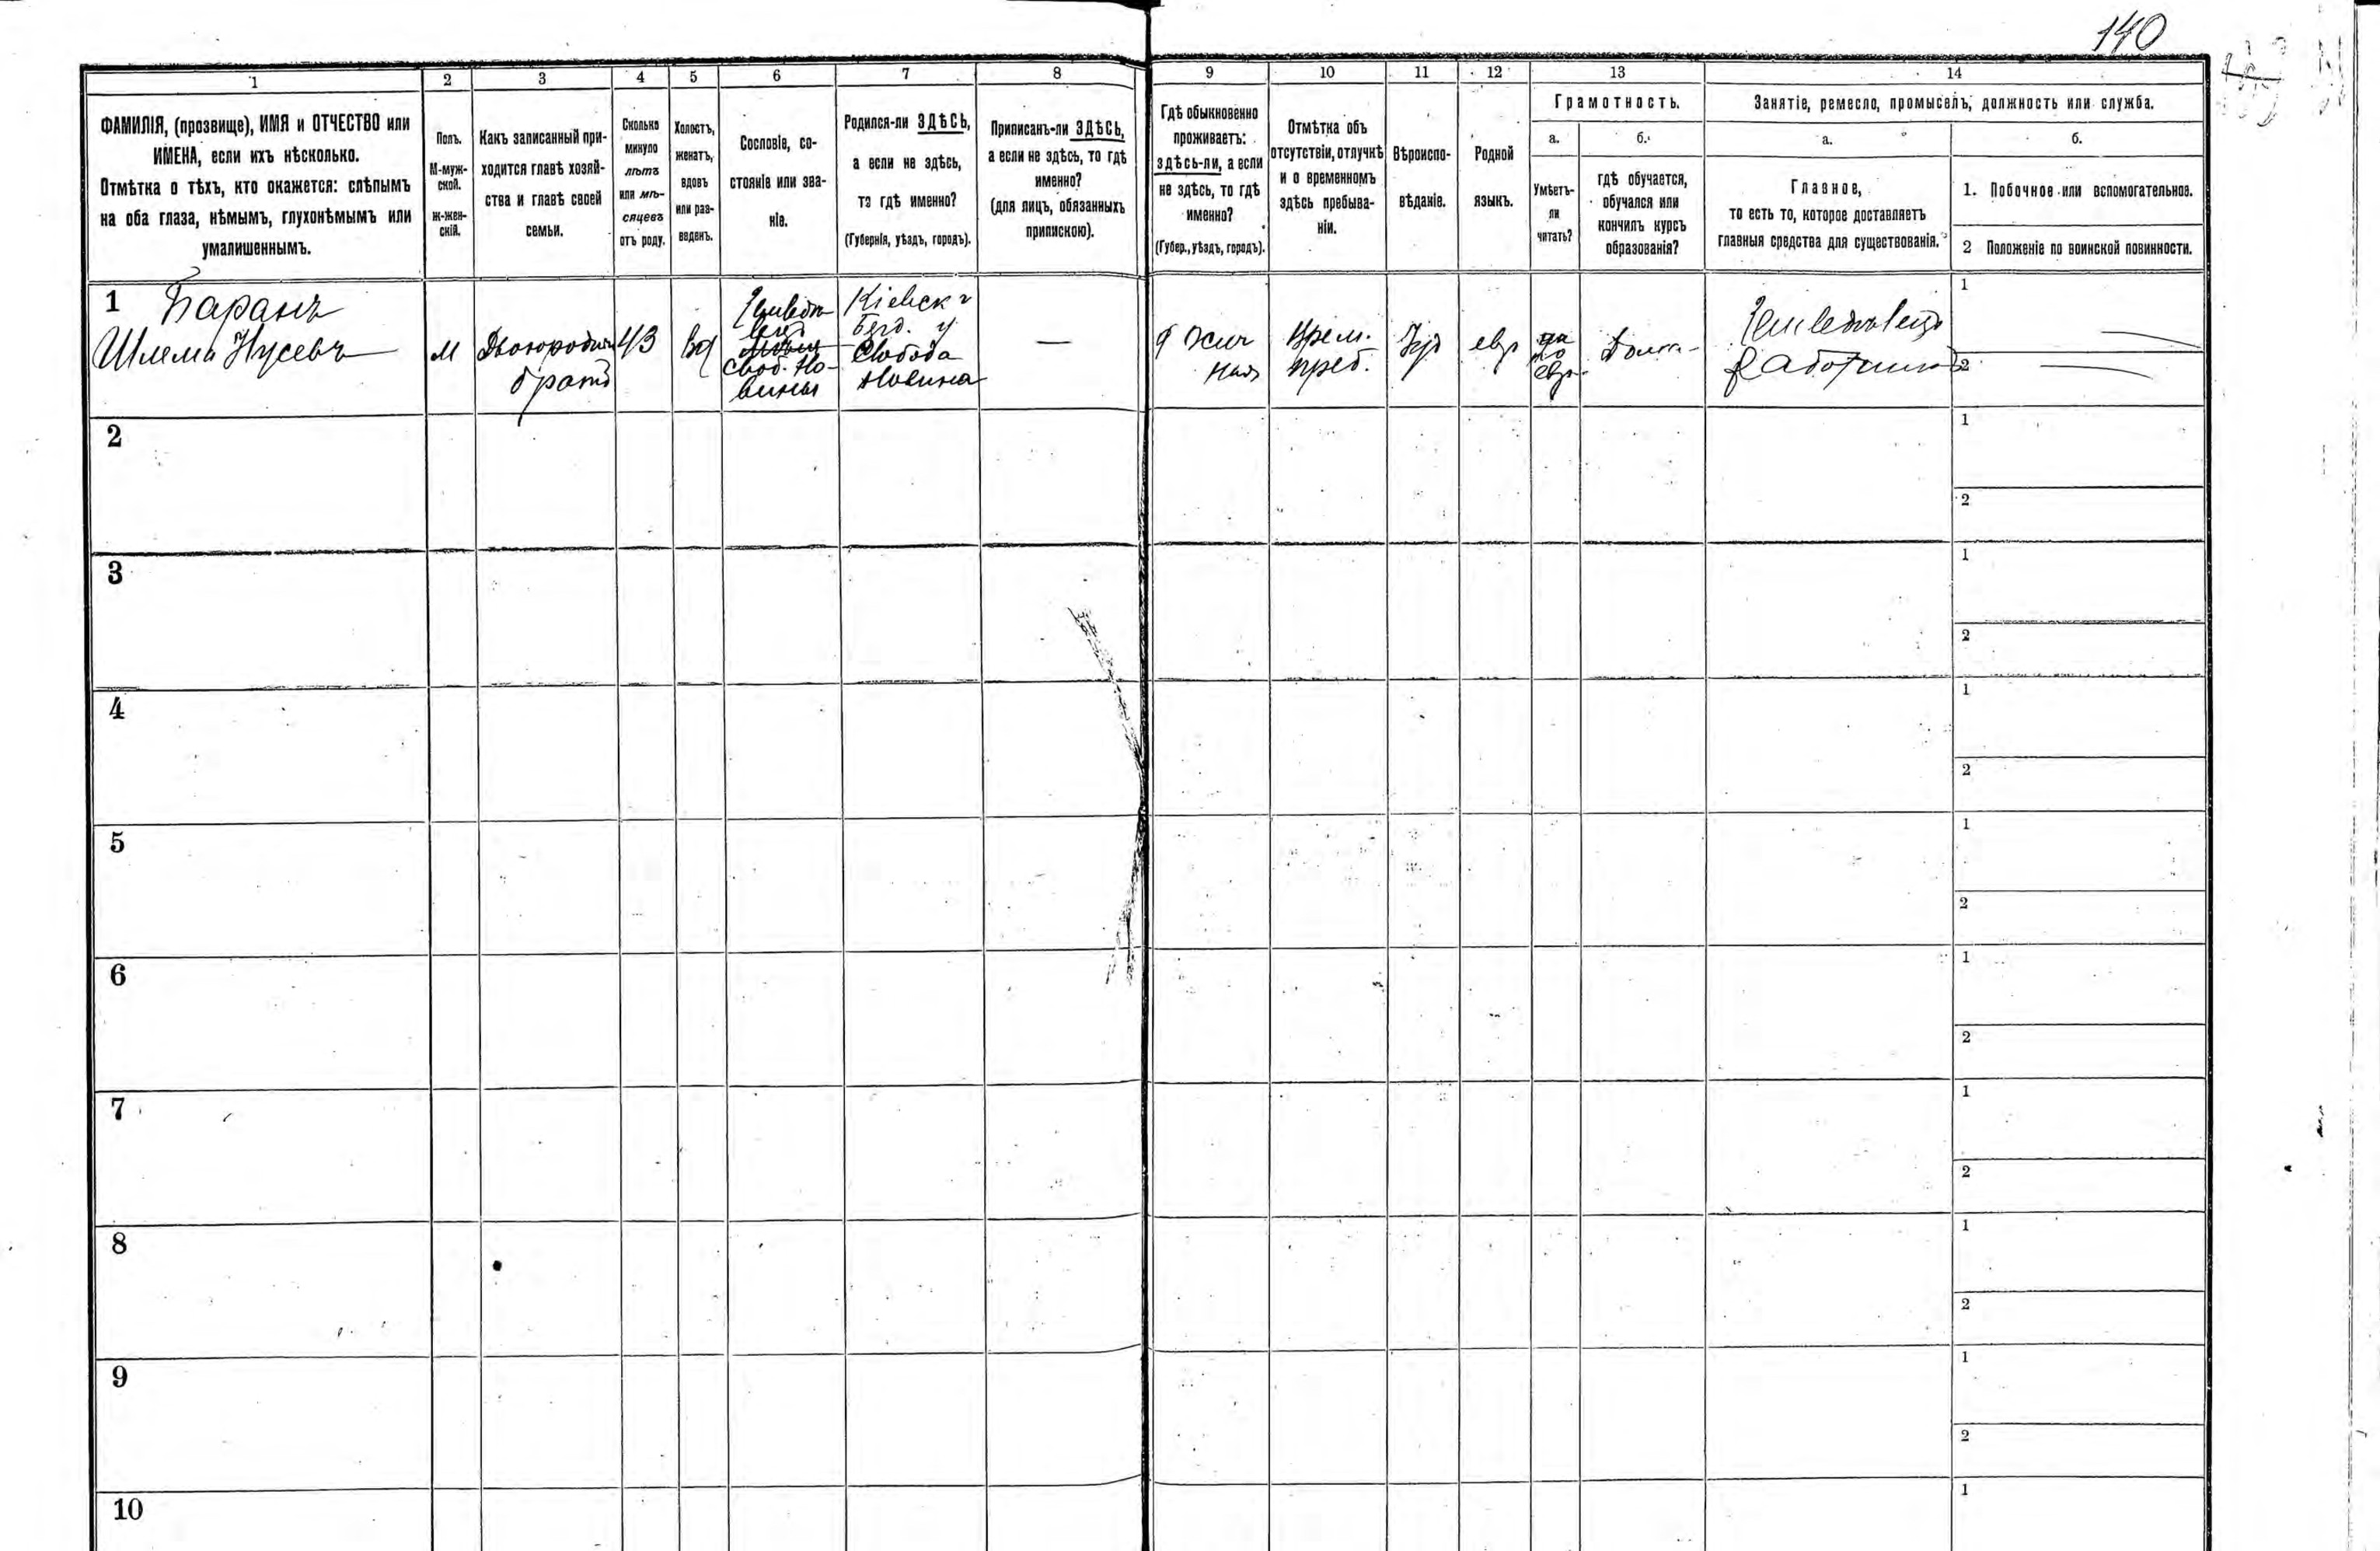 140
1
2
3
4
5
6
7
8
9
10
11
12
13
14
ФАМИЛІЯ, (прозвище), ИМЯ и ОТЧЕСТВО или
ИМЕНА, если ихъ нѣсколько.
Отмѣтка о тѣхъ, кто окажется: слѣпымъ
на оба глаза, нѣмымъ, глухонѣмымъ или
умалишеннымъ.
Полъ.
М-муж-
ской.
Ж-жен-
скій.
Какъ записанный при-
ходится главѣ хозяй-
ства и главѣ своей
семьи.
Сколько
минуло
лѣтъ
или мѣ-
сяцевъ
отъ роду.
Холостъ,
женатъ,
вдовъ
или раз-
веденъ.
Сословіе, со-
стояніе или зва-
ніе.
Родился-ли ЗДѢСЬ,
а если не здѣсь,
то гдѣ именно?
(Губернія, уѣздъ, городъ).
Приписанъ-ли ЗДѢСЬ,
а если не здѣсь, то гдѣ
именно?
(для лицъ, обязанныхъ
припискою).
Гдѣ обыкновенно
проживаетъ:
здѣсь-ли, а если
не здѣсь, то гдѣ
именно?
(Губер., уѣздъ, городъ).
Отмѣтка объ
отсутствіи, отлучкѣ
и о временномъ
здѣсь пребыва-
ніи.
Вѣроиспо-
вѣданіе.
Родной
языкъ.
Грамотность.
а.
Умѣетъ-
ли
читать?
б.
гдѣ обучается,
обучался или
кончилъ курсъ
образованія?
Занятіе, ремесло, промыселъ, должность или служба.
а.
Главное,
то есть то, которое доставляетъ
главныя средства для существованія.
б.
1. Побочное или вспомогательное.
2 Положеніе по воинской повинности.
1 Баранъ
Шлема Нусевъ
М
Двоюродный
братъ
43
Вд
Слобода
Новина
Кіевск г
Слобода
Новина
—
Врем.
преб.
евр
по
евр
1
2
2
1
2
3
1
2
4
1
2
5
1
2
6
1
2
7
1
2
8
1
2
9
1
2
10
1